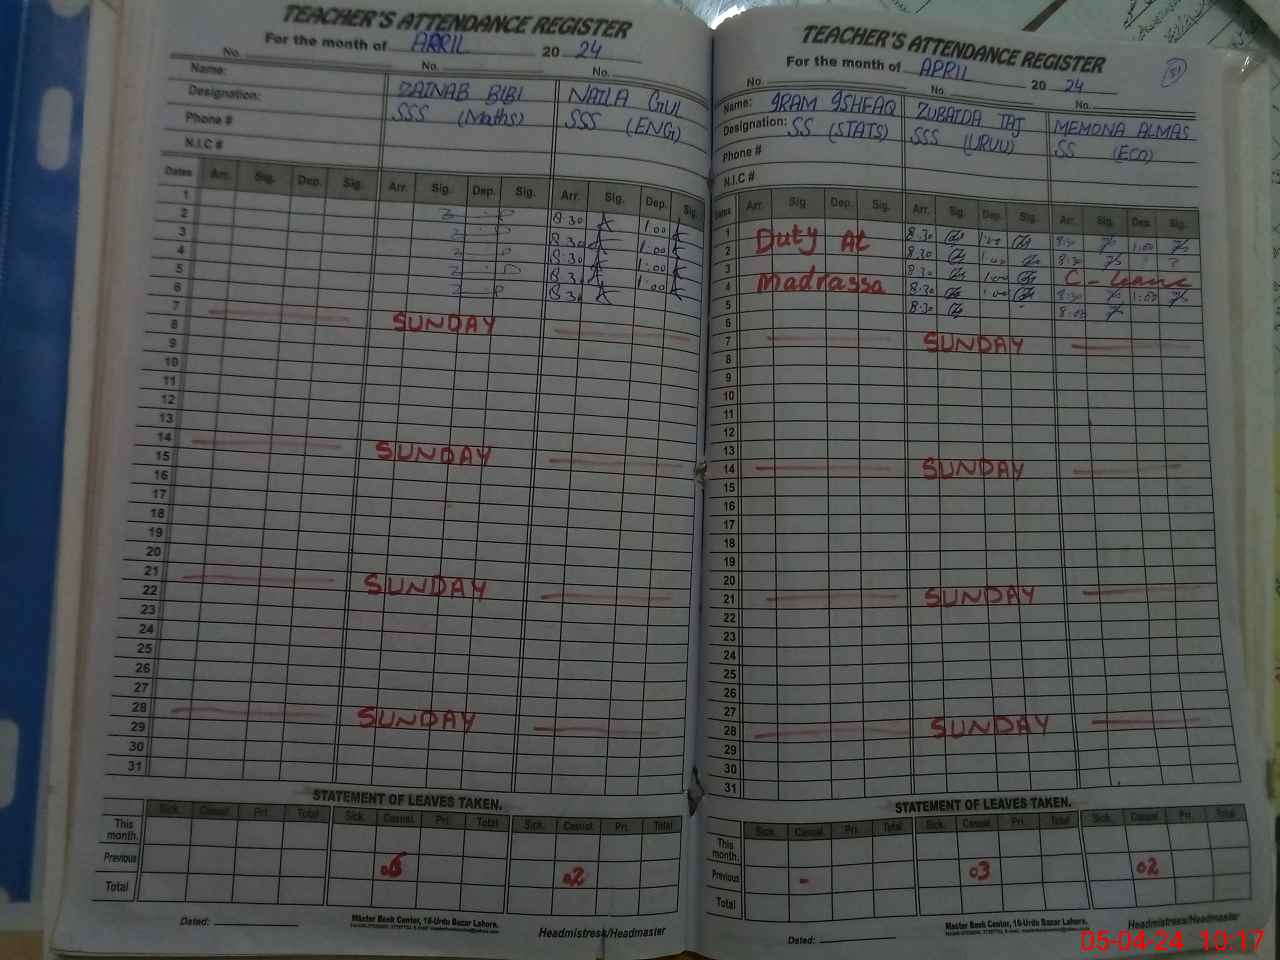 TEACHER'S ATTENDANCE REGISTER
For the month of APRIL 20 24
No. No. No.
Name: ZAINAB BIBI NAILA GUL
Designation: SSS (Maths) SSS (ENG)
Phone #
N.I.C #
Dates Arr. Sig. Dep. Sig. Arr. Sig. Dep. Sig. Arr. Sig. Dep. Sig.
1 8:30 1:00
2 8:30 1:00
3 8:30 1:00
4 8:30 1:00
5 8:30
6
7 SUNDAY
8
9
10
11
12
13
14 SUNDAY
15
16
17
18
19
20
21 SUNDAY
22
23
24
25
26
27
28 SUNDAY
29
30
31
STATEMENT OF LEAVES TAKEN.
Sick. Casual. Pri. Total Sick. Casual. Pri. Total Sick. Casual. Pri. Total
This month.
Previous 06 02
Total
Dated:
Master Book Center, 16-Urdu Bazar Lahore.
Headmistress/Headmaster
TEACHER'S ATTENDANCE REGISTER
For the month of APRIL 20 24
51
No. No. No.
Name: IRAM ISHFAQ ZUBAIDA TAJ MEMONA ALMAS
Designation: SS (STATS) SSS (URDU) SS (ECO)
Phone #
N.I.C #
Dates Arr. Sig. Dep. Sig. Arr. Sig. Dep. Sig. Arr. Sig. Dep. Sig.
1 Duty At 8:30 1:00 8:30 1:00
2 8:30 1:00 8:30
3 Madrassa 8:30 1:00 C-Leave
4 8:30 1:00 8:30 1:00
5 8:30 8:00
6
7 SUNDAY
8
9
10
11
12
13
14 SUNDAY
15
16
17
18
19
20
21 SUNDAY
22
23
24
25
26
27
28 SUNDAY
29
30
31
STATEMENT OF LEAVES TAKEN.
Sick. Casual. Pri. Total Sick. Casual. Pri. Total Sick. Casual. Pri. Total
This month.
Previous - 03 02
Total
Dated:
Master Book Center, 16-Urdu Bazar Lahore.
Headmistress/Headmaster
05-04-24 10:17